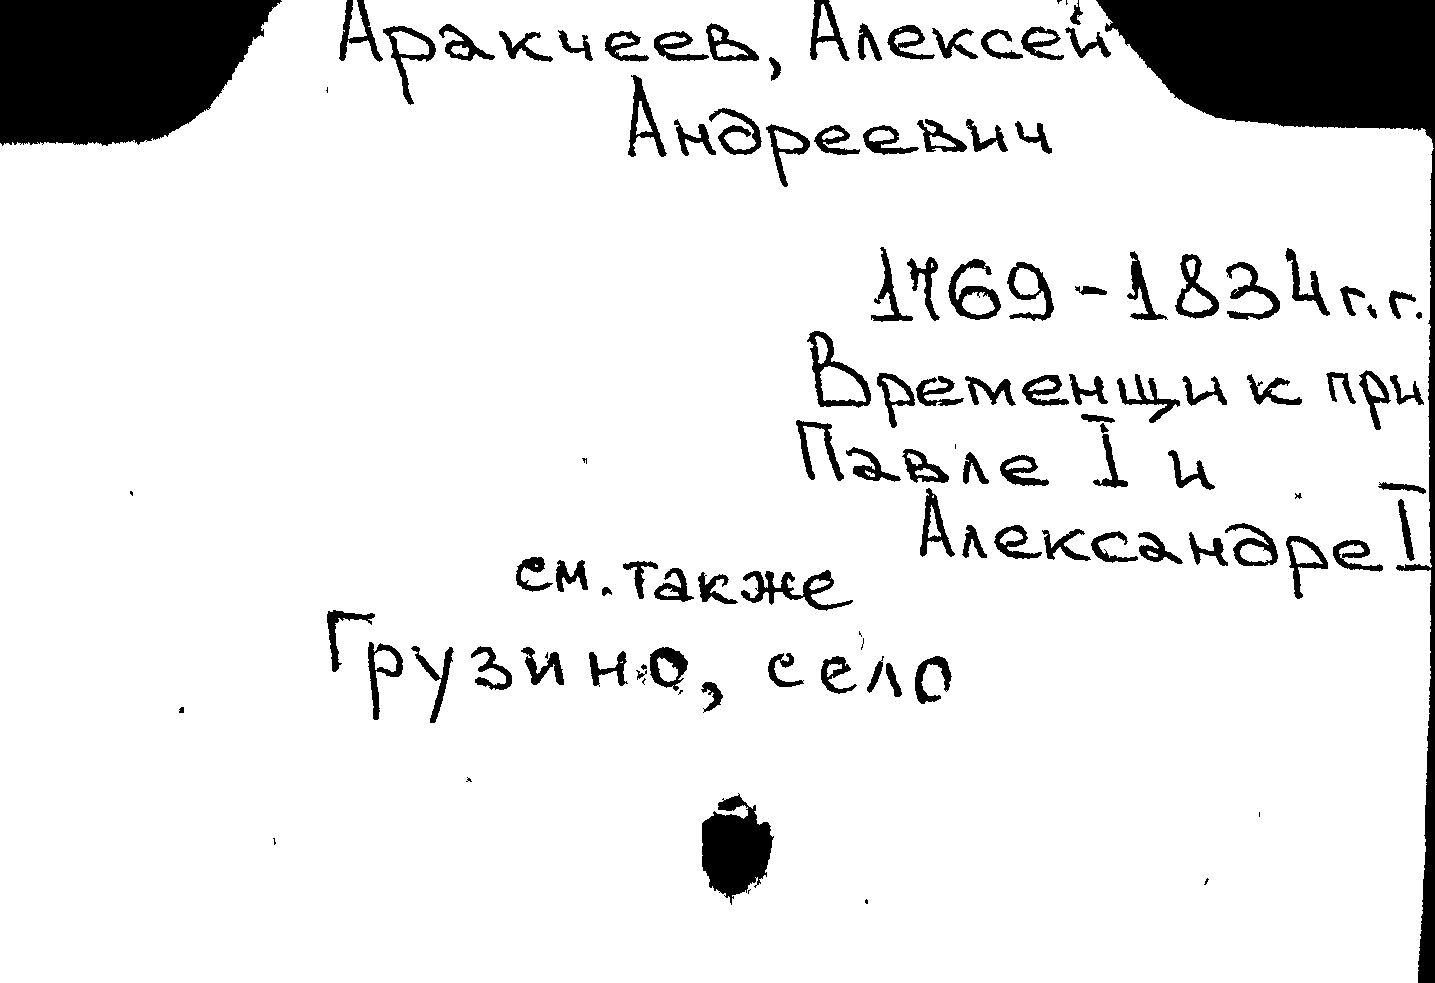 Аракчеев, Алексей
Андреевич
1769-1834 г.г.
Временщик при
Павле I и
Александре I
см. также
Грузино, село